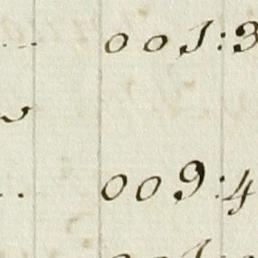 ... 001:3
.. 009:4